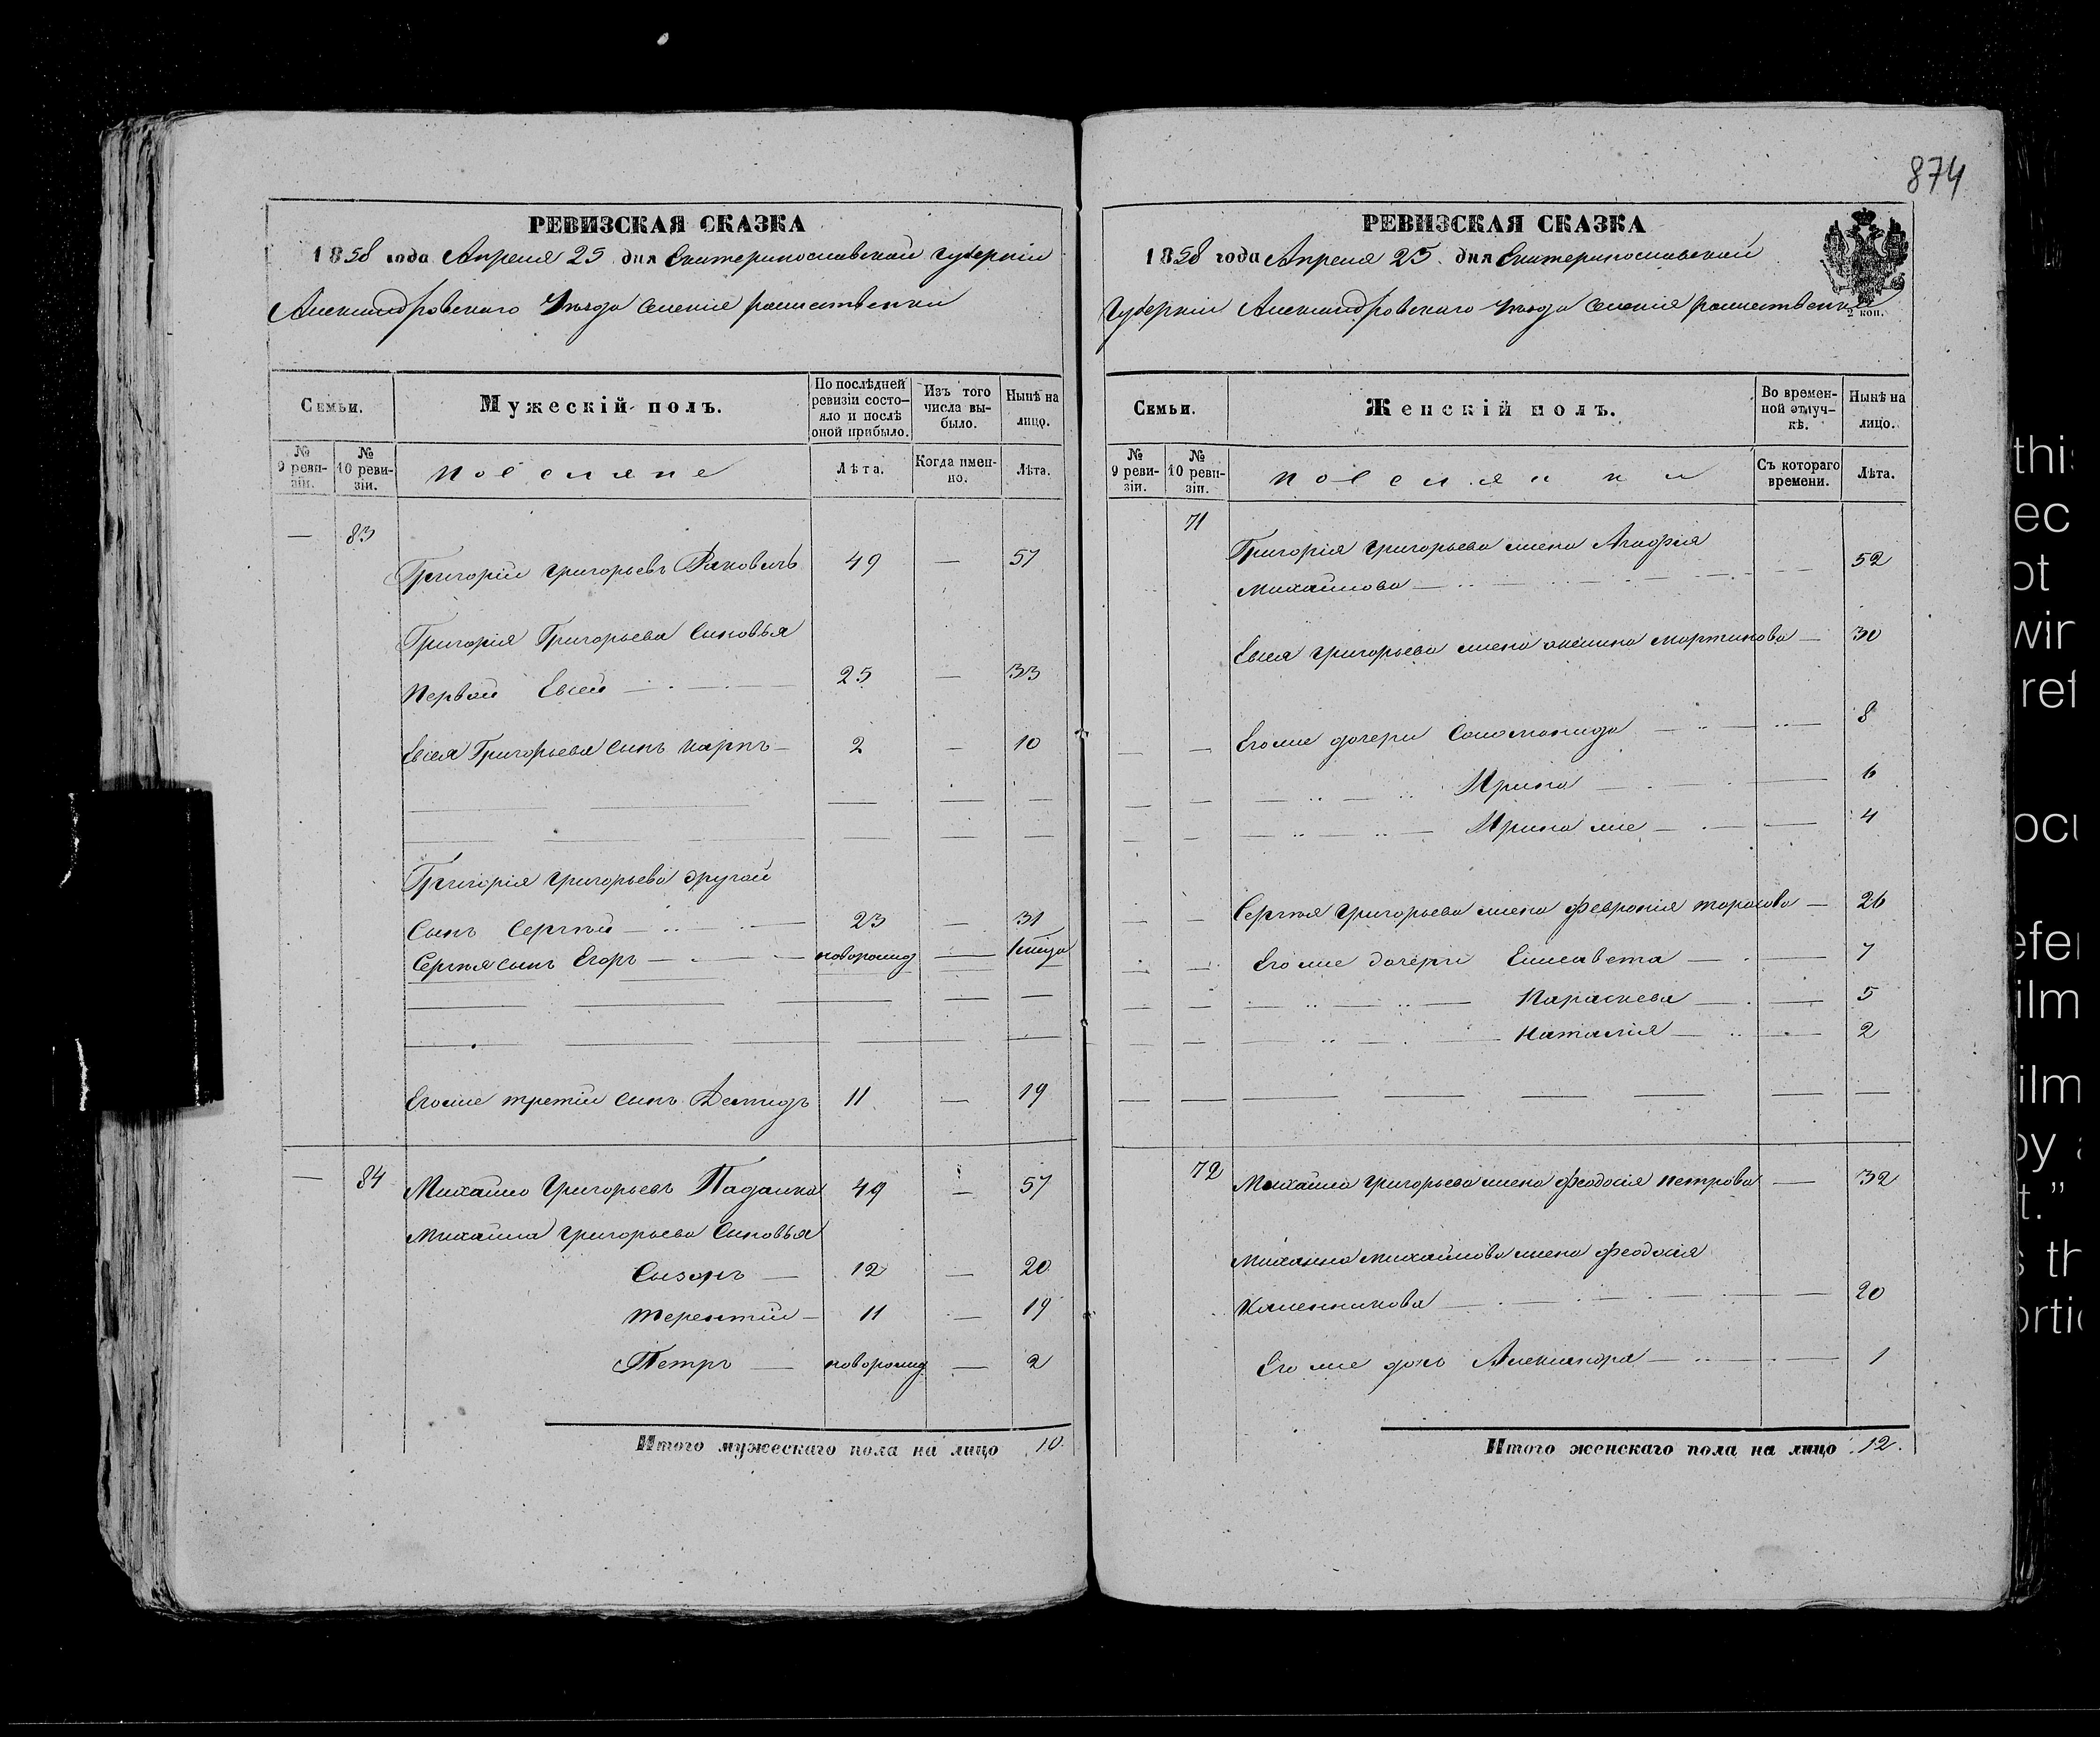 874
РЕВИЗСКАЯ СКАЗКА
1858 года Апреля 25 дня Екатеринославской губерніи
Александровскаго Уѣзда Селенія
Семьи.
Мужескій полъ.
По послѣдней ревизіи состояло и послѣ оной прибыло.
Изъ того числа выбыло.
Нынѣ на лицо.
№ 9 ревизіи.
№ 10 ревизіи.
Поселяне
Лѣта.
Когда именно.
Лѣта.
— 83
Григорій Григорьевъ 49 — 57
Григорія Григорьева сыновья
Первой Евсей — 25 — 33
Евсея Григорьева сынъ Карпъ — 2 — 10
Григорія Григорьева другой
Сынъ Сергѣй — 23 — 31
Сергѣя сынъ Егоръ — новорожд — 1 года
Егоже третій сынъ Демидъ 11 — 19
— 84 Михайло Григорьевъ Падалка 49 — 57
Михайла Григорьева Сыновья
Сызонъ — 12 — 20
Терентій — 11 — 19
Петръ — новорожд — 2
Итого мужескаго пола на лицо 10.
РЕВИЗСКАЯ СКАЗКА
1858 года Апреля 25 дня Екатеринославской
Губерніи Александровскаго Уѣзда Селенія
2 коп.
Семьи.
Женскій полъ.
Во временной отлучкѣ.
Нынѣ на лицо.
№ 9 ревизіи.
№ 10 ревизіи.
Поселянки
Съ котораго времени.
Лѣта.
71
Григорія Григорьева жена Агафія
Михайлова — 52
Евсея Григорьева жена Мартинова — 30
Егоже дочери Соломонида — 8
Ирина — 6
Ирина же — 4
Сергѣя Григорьева жена Февронія Тарасова — 26
Егоже дочери Елисавета — 7
Параскева — 5
Наталія — 2
72 Михайла Григорьева жена Феодосія Петрова — 32
Михайлова жена Феодосія
— 20
Его же дочь Александра — 1
Итого женскаго пола на лицо 12.